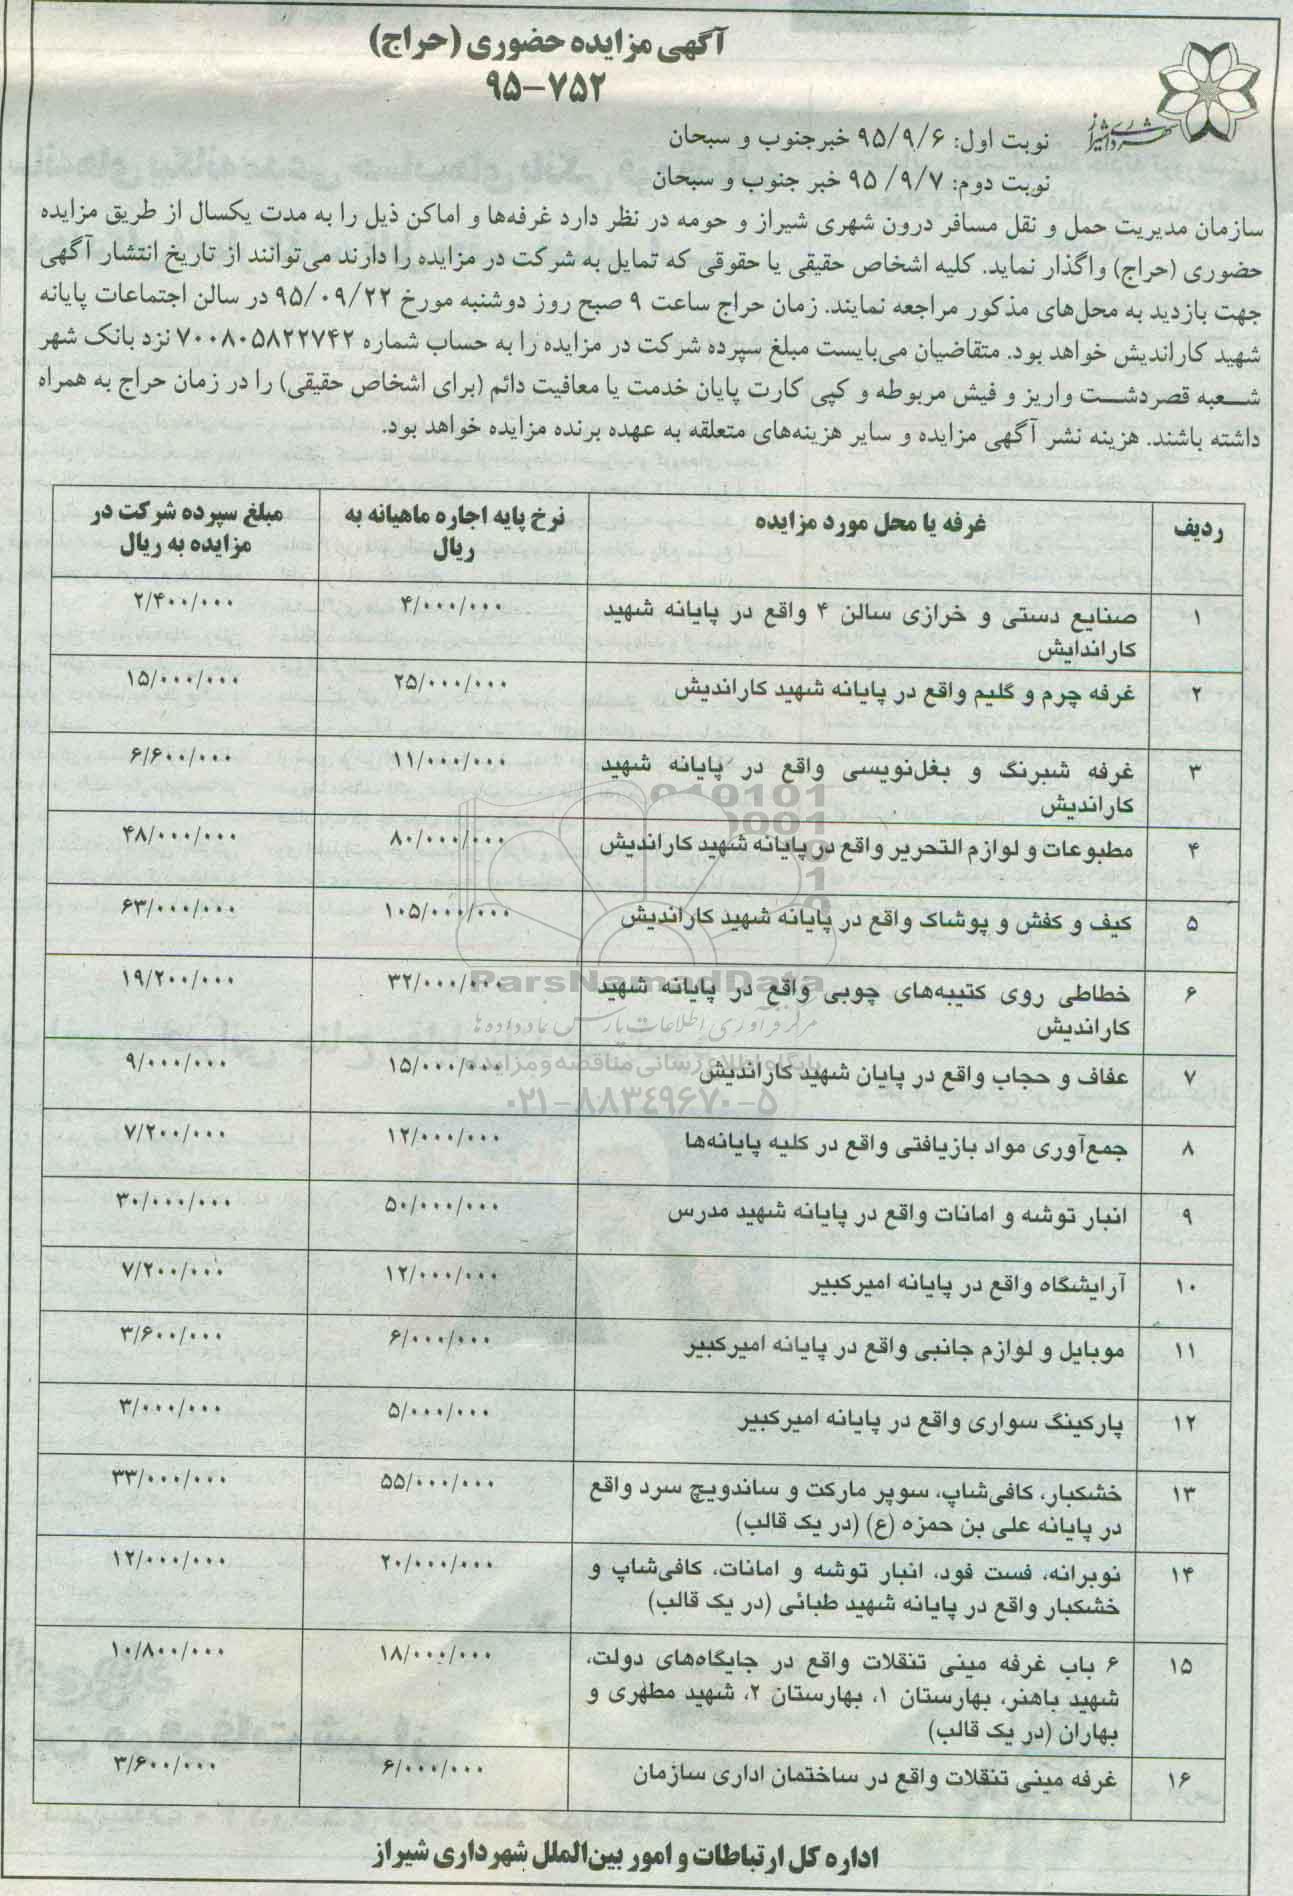 آگهی مزایده حضوری (حراج)
۹۵-۷۵۲
شهرداری شیراز
نوبت اول: ۹۵/۹/۶ خبرجنوب و سبحان
نوبت دوم: ۹۵/۹/۷ خبر جنوب و سبحان
سازمان مدیریت حمل و نقل مسافر درون شهری شیراز و حومه در نظر دارد غرفه‌ها و اماکن ذیل را به مدت یکسال از طریق مزایده
حضوری (حراج) واگذار نماید. کلیه اشخاص حقیقی یا حقوقی که تمایل به شرکت در مزایده را دارند می‌توانند از تاریخ انتشار آگهی
جهت بازدید به محل‌های مذکور مراجعه نمایند. زمان حراج ساعت ۹ صبح روز دوشنبه مورخ ۹۵/۰۹/۲۲ در سالن اجتماعات پایانه
شهید کاراندیش خواهد بود. متقاضیان می‌بایست مبلغ سپرده شرکت در مزایده را به حساب شماره ۷۰۰۸۰۵۸۲۲۷۴۲ نزد بانک شهر
شعبه قصردشت واریز و فیش مربوطه و کپی کارت پایان خدمت یا معافیت دائم (برای اشخاص حقیقی) را در زمان حراج به همراه
داشته باشند. هزینه نشر آگهی مزایده و سایر هزینه‌های متعلقه به عهده برنده مزایده خواهد بود.
ردیف غرفه یا محل مورد مزایده نرخ پایه اجاره ماهیانه به مبلغ سپرده شرکت در
ریال مزایده به ریال
۱ صنایع دستی و خرازی سالن ۴ واقع در پایانه شهید ۴/۰۰۰/۰۰۰ ۲/۴۰۰/۰۰۰
کاراندایش
۲ غرفه چرم و گلیم واقع در پایانه شهید کاراندیش ۲۵/۰۰۰/۰۰۰ ۱۵/۰۰۰/۰۰۰
۳ غرفه شبرنگ و بغل‌نویسی واقع در پایانه شهید ۱۱/۰۰۰/۰۰۰ ۶/۶۰۰/۰۰۰
کاراندیش
۴ مطبوعات و لوازم التحریر واقع در پایانه شهید کاراندیش ۸۰/۰۰۰/۰۰۰ ۴۸/۰۰۰/۰۰۰
۵ کیف و کفش و پوشاک واقع در پایانه شهید کاراندیش ۱۰۵/۰۰۰/۰۰۰ ۶۳/۰۰۰/۰۰۰
ParsNamadData
۶ خطاطی روی کتیبه‌های چوبی واقع در پایانه شهید ۳۲/۰۰۰/۰۰۰ ۱۹/۲۰۰/۰۰۰
کاراندیش
مرکز فرآوری اطلاعات پارس نماد داده ها
پایگاه اطلاع رسانی مناقصه و مزایده
۷ عفاف و حجاب واقع در پایان شهید کاراندیش ۱۵/۰۰۰/۰۰۰ ۹/۰۰۰/۰۰۰
۰۲۱-۸۸۳۴۹۶۷۰-۵
۸ جمع‌آوری مواد بازیافتی واقع در کلیه پایانه‌ها ۱۲/۰۰۰/۰۰۰ ۷/۲۰۰/۰۰۰
۹ انبار توشه و امانات واقع در پایانه شهید مدرس ۵۰/۰۰۰/۰۰۰ ۳۰/۰۰۰/۰۰۰
۱۰ آرایشگاه واقع در پایانه امیرکبیر ۱۲/۰۰۰/۰۰۰ ۷/۲۰۰/۰۰۰
۱۱ موبایل و لوازم جانبی واقع در پایانه امیرکبیر ۶/۰۰۰/۰۰۰ ۳/۶۰۰/۰۰۰
۱۲ پارکینگ سواری واقع در پایانه امیرکبیر ۵/۰۰۰/۰۰۰ ۳/۰۰۰/۰۰۰
۱۳ خشکبار، کافی‌شاپ، سوپر مارکت و ساندویچ سرد واقع ۵۵/۰۰۰/۰۰۰ ۳۳/۰۰۰/۰۰۰
در پایانه علی بن حمزه (ع) (در یک قالب)
۱۴ نوبرانه، فست فود، انبار توشه و امانات، کافی‌شاپ و ۲۰/۰۰۰/۰۰۰ ۱۲/۰۰۰/۰۰۰
خشکبار واقع در پایانه شهید طبائی (در یک قالب)
۱۵ ۶ باب غرفه مینی تنقلات واقع در جایگاه‌های دولت، ۱۸/۰۰۰/۰۰۰ ۱۰/۸۰۰/۰۰۰
شهید باهنر، بهارستان ۱، بهارستان ۲، شهید مطهری و
بهاران (در یک قالب)
۱۶ غرفه مینی تنقلات واقع در ساختمان اداری سازمان ۶/۰۰۰/۰۰۰ ۳/۶۰۰/۰۰۰
اداره کل ارتباطات و امور بین‌الملل شهرداری شیراز